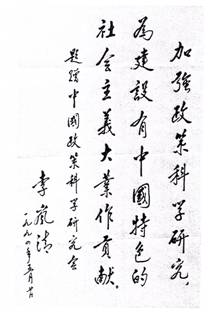 加强政策科学研究，
為建設有中國特色的
社会主義大業作貢献。
題贈中國政策科学研究会
李嵐清
一九九四年五月廿日